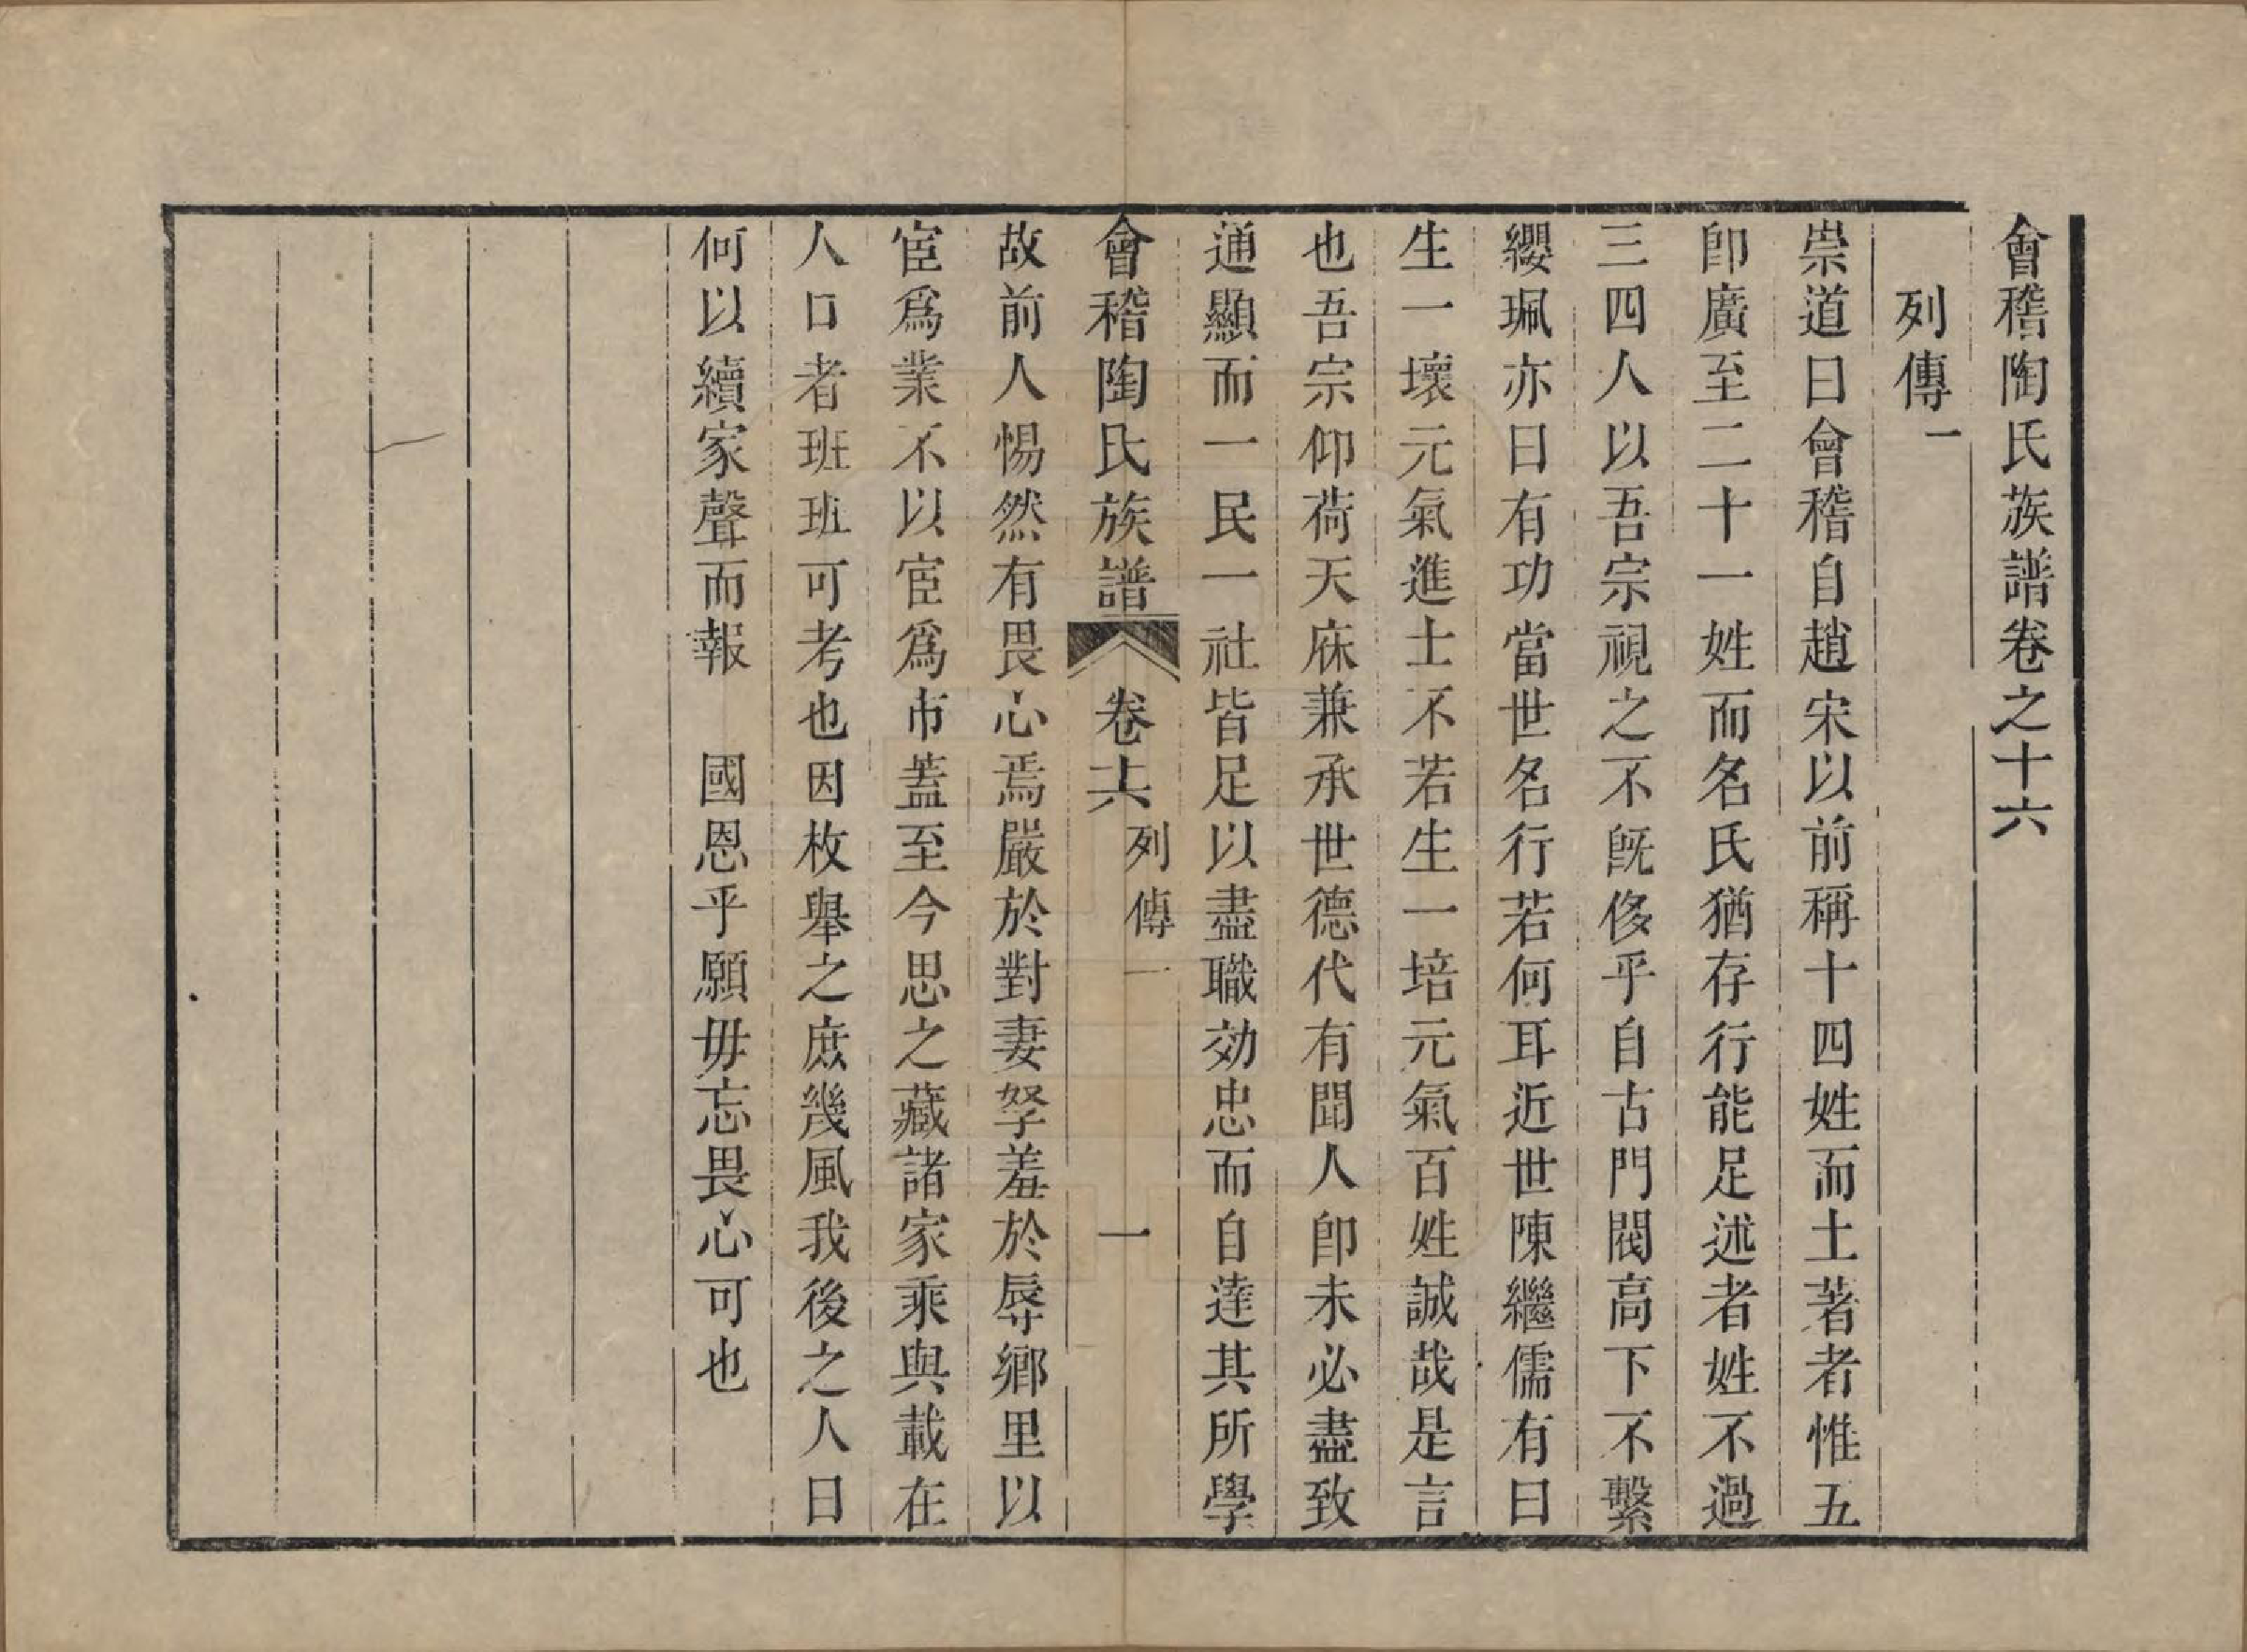 會稽陶氏族譜卷之十六
列傳一
崇道曰會稽自趙宋以前稱十四姓而土著者惟五
卽廣至二十一姓而名氏猶存行能足述者姓不過
三四人以吾宗視之不旣侈乎自古門閥高下不繫
纓珮亦曰有功當世名行若何耳近世陳繼儒有曰
生一壞元氣進士不若生一培元氣百姓誠哉是言
也吾宗仰荷天庥兼承世德代有聞人卽未必盡致
通顯而一民一社皆足以盡職効忠而自達其所學
會稽陶氏族譜 卷十六 列傳一 一
故前人惕然有畏心焉嚴於對妻孥羞於辱鄉里以
宦爲業不以宦爲市蓋至今思之藏諸家乘與載在
人口者班班可考也因枚舉之庶幾風我後之人曰
何以續家聲而報 國恩乎願毋忘畏心可也